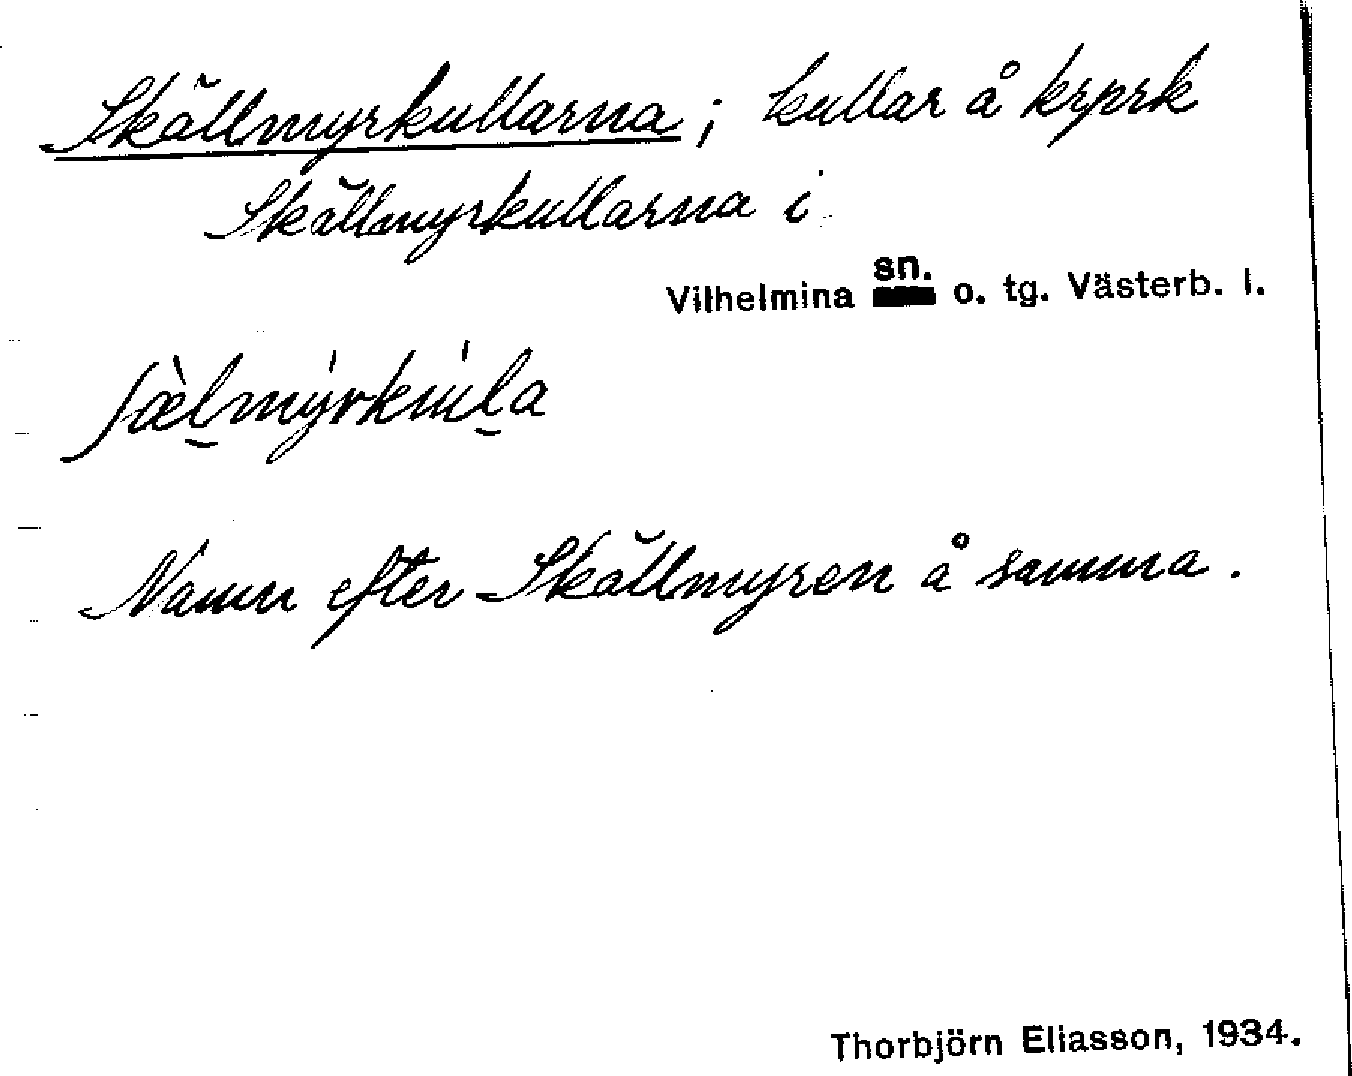 Skällmyrkullarna; kullar å krprk
Skällmyrkullarna i
Vilhelmina sn. o. tg. Västerb. l.
Namn efter Skällmyren å samma.
Thorbjörn Eliasson, 1934.